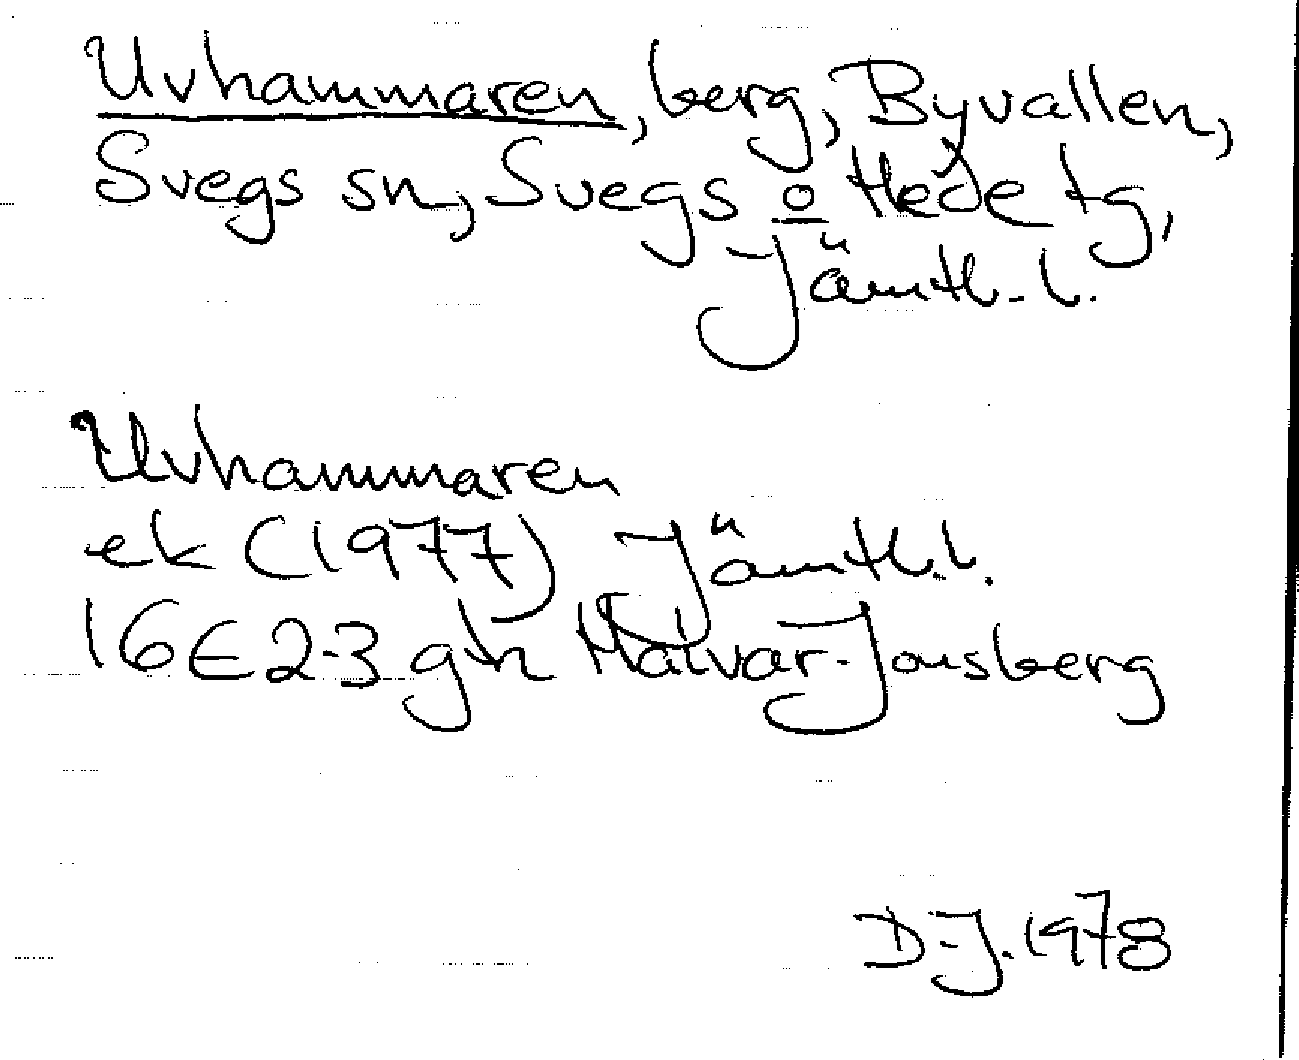 Uvhammaren, berg, Byvallen,
Svegs sn, Svegs o Hede tg,
Jämtl. l.
Uvhammaren
ek (1977) Jämtl. l.
16E2-3 gh Malvar-Jonsberg
D-J. 1978